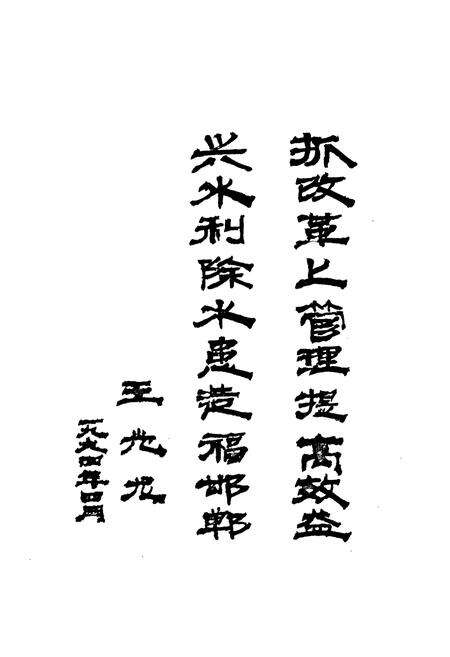 抓改革上管理提高效益
兴水利除水患造福邯郸
王
一九九四年四月